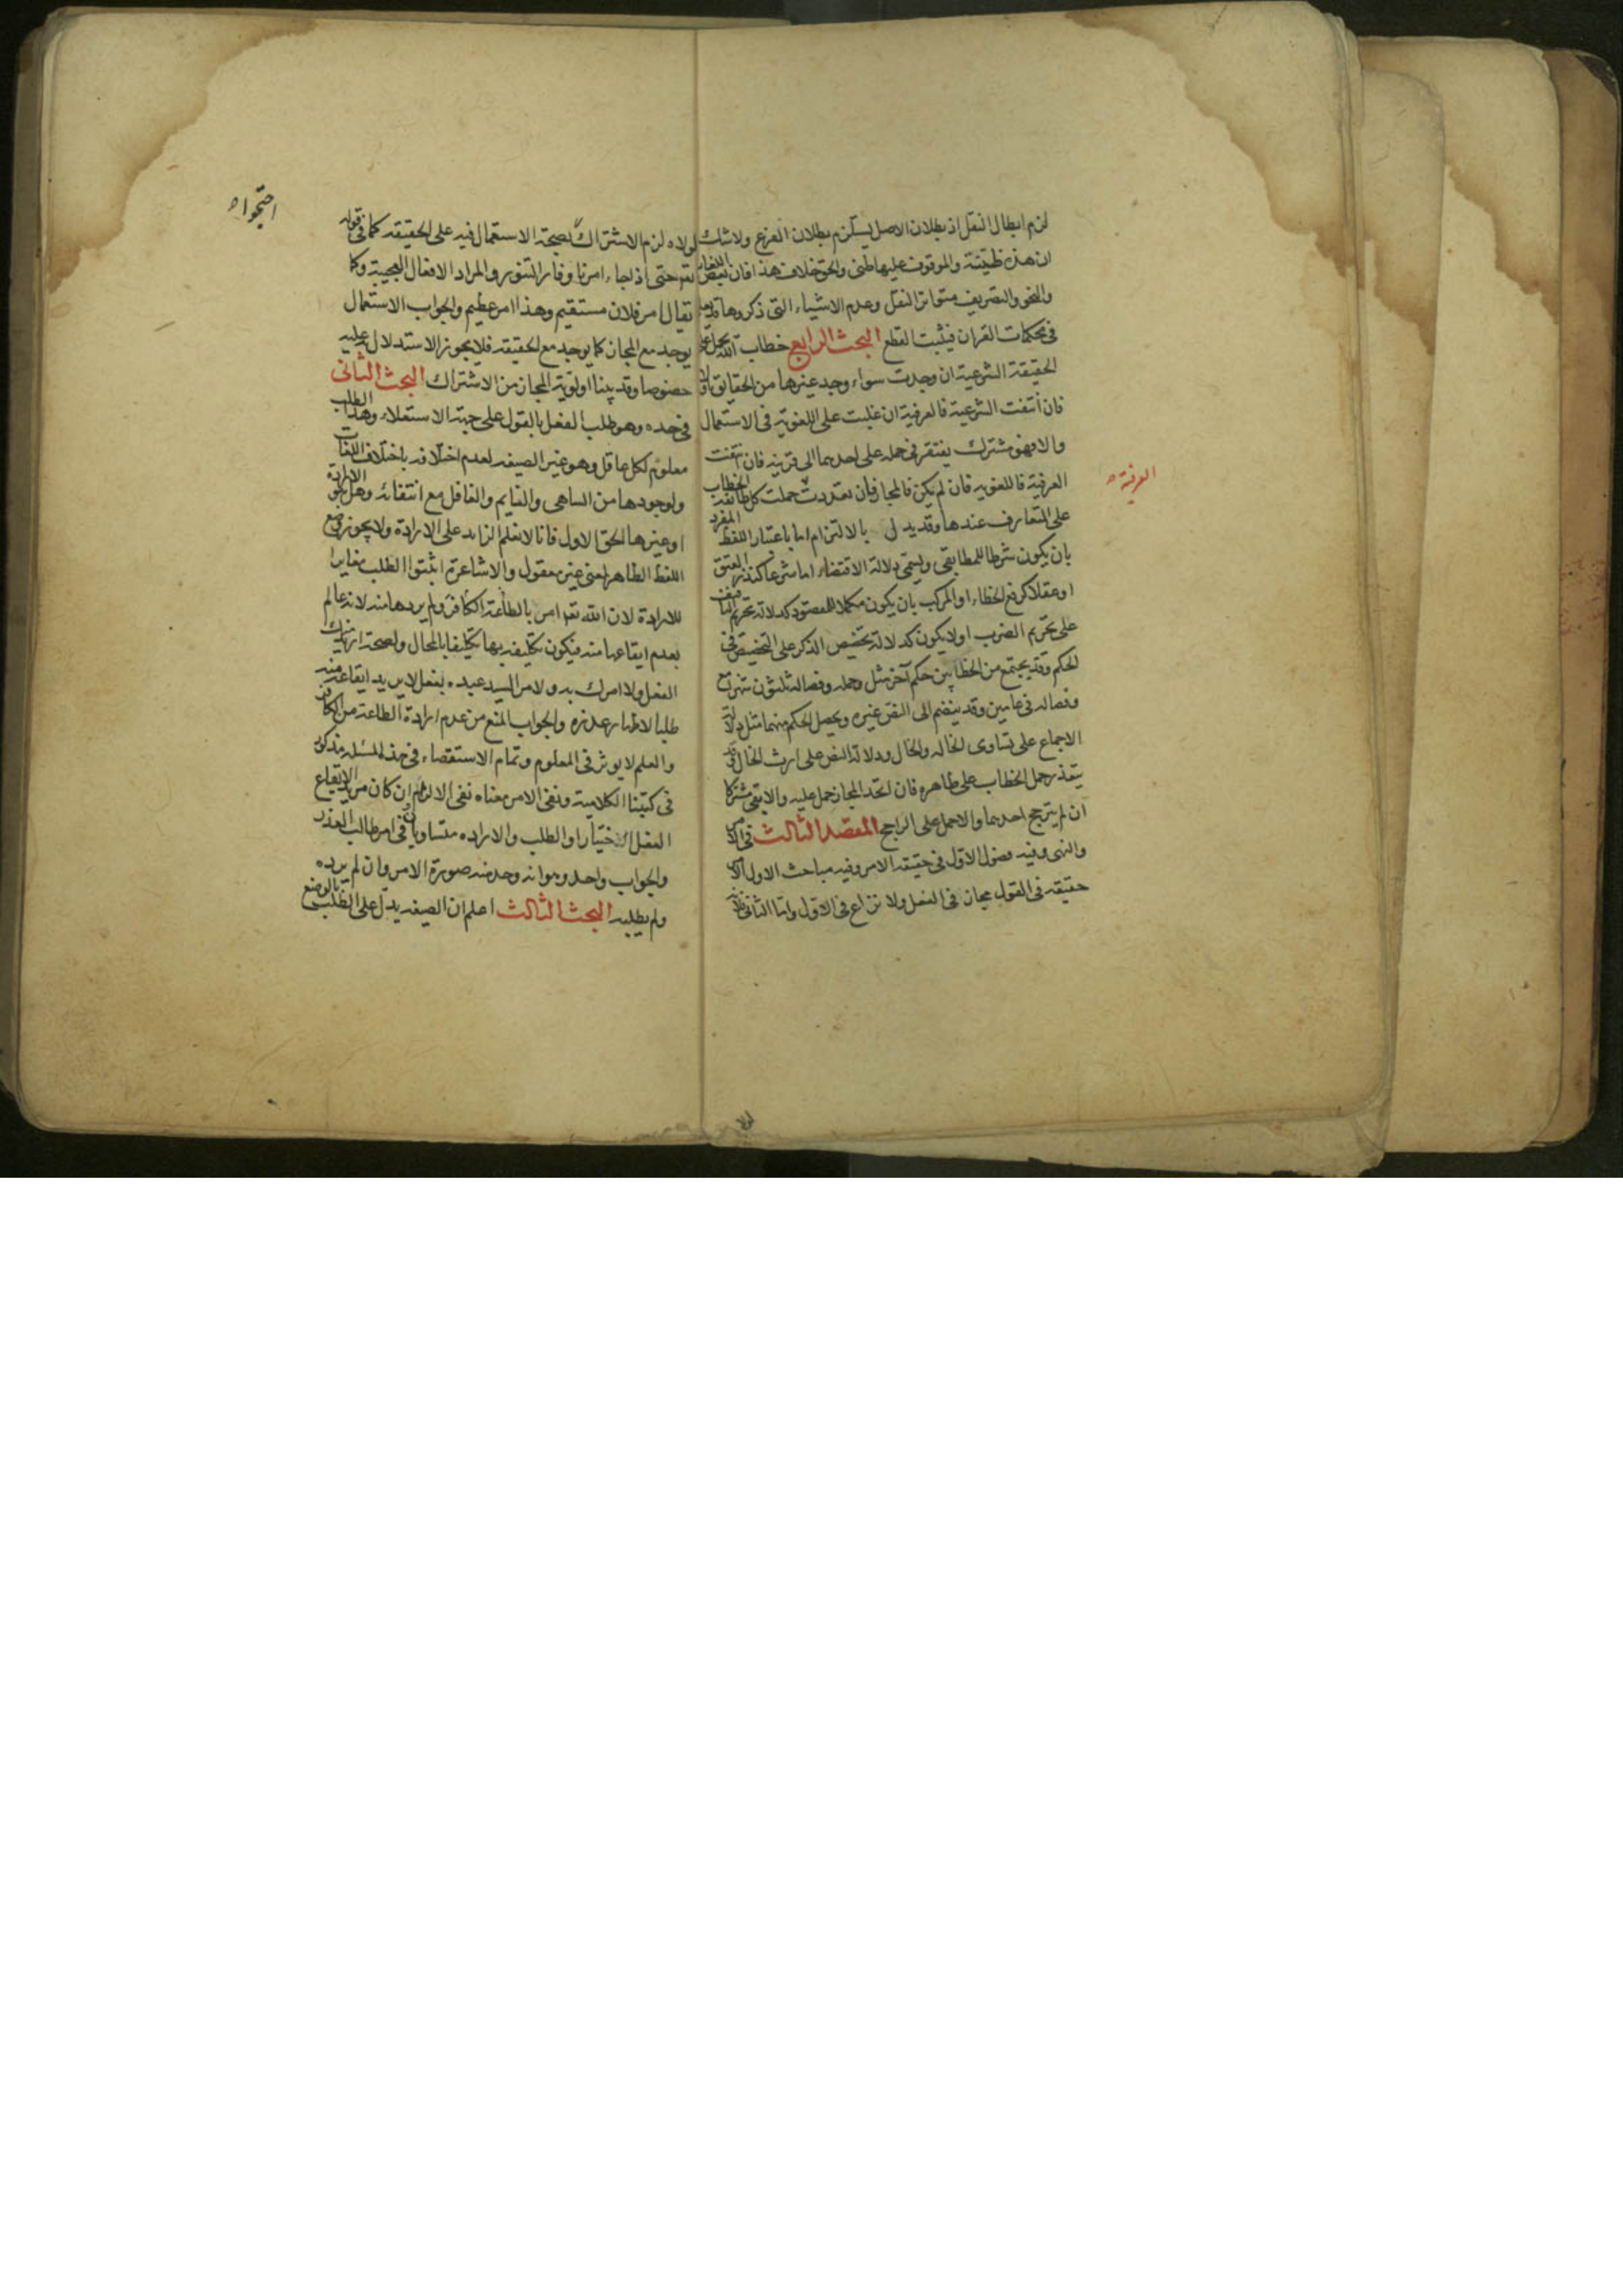 لزم ابطال النقل اذ بطلان الاصل يستلزم بطلان الفرع ولا شك
ان هذه ظنية والموقوف عليها ظنى والحق خلاف هذا فان بعض اللغات
والنحو والتصريف متواتر النقل وعدم الاشياء التى ذكروها قد يعلم
فى محكمات القران فيثبت القطع البحث الرابع خطاب الله يحمل على
الحقيقة الشرعية ان وجدت سواء وجد غيرها من الحقايق او لا
فان انتفت الشرعية فالعرفية ان غلبت على اللغوية فى الاستعمال
والا فهو مشترك يفتقر فى حمله على احدهما الى قرينه فان انتفت
العرفية فاللغويه فان لم يكن فالمجاز فان تعددت حملت كل طائفه الخطاب
العرفية
على المتعارف عندها وقد يدل بالالتزام اما باعتبار اللفظ المفرد
بان يكون شرطا للمطابقى ويسمى دلالة الاقتضاء اما شرعا كنذر العتق
او عقلا كرفع الخطاء او المركب بان يكون مكملا للمقصود كدلالة تحريم التافيف
على تحريم الضرب او لا يكون كدلالة تخصيص الذكر على التخصيص فى
الحكم وقد يجتمع من الخطابين حكم آخر مثل وحمله وفصاله ثلثون شهرا مع
وفصاله فى عامين وقد ينضم الى النص غيره ويحصل الحكم منهما مثل دلالة
الاجماع على تساوى الخاله والخال ودلالة النص على ارث الخال وقد
يتعذر حمل الخطاب على ظاهره فان اتحد المجاز حمل عليه والا بقى مشتركا
ان لم يترجح احدهما والا حمل على الراجح المقصد الثالث فى الامر
والنهى وفيه فصول الاول فى حقيقه الامر وفيه مباحث الاول الامر
حقيقه فى القول مجاز فى الفعل ولا نزاع فى الاول واما الثانى فلانه
احتجوا
لولاه لزم الاشتراك لصحة الاستعمال فيه على الحقيقه كما فى قوله
تعه حتى اذا جاء امرنا وفار التنور والمراد الافعال العجيبة وكما
يقال امر فلان مستقيم وهذا امر عظيم والجواب الاستعمال
يوجد مع المجاز كما يوجد مع الحقيقه فلا يجوز الاستدلال به عليه
خصوصا وقد بينا اولوية المجاز من الاشتراك البحث الثانى
فى حده وهو طلب الفعل بالقول على جهة الاستعلاء وهذا الطلب
معلوم لكل عاقل وهو غير الصيغه لعدم اختلافه باختلاف اللغات
ولوجودها من الساهى والنايم والغافل مع انتفائه وهل هو الارادة
او غيرها الحق الاول فانا لا نعلم الزايد على الارادة ولا يجوز وضع
اللفظ الظاهر لمعنى غير معقول والاشاعرة اثبتوا الطلب مغايرا
للارادة لان الله تعه امر بالطاعة الكافر ولم يردها منه لانه عالم
بعدم ايقاعها منه فيكون تكليفه بها تكليفا بالمحال ولصحة اريد منك
الفعل ولا امرك به ولامر السيد عبده بفعل لا يريد ايقاعه منه
طلبا لاظهار عذره والجواب المنع من عدم ارادة الطاعة من الكافر
والعلم لا يوثر فى المعلوم وتمام الاستقصاء فى هذه المسئله مذكور
فى كتبنا الكلامية ونفى الامر معناه نفى الالزام وان كان مريد الايقاع
الفعل اختيارا والطلب والاراده متساويان فى امر طالب العذر
والجواب واحد وهو انه وجد منه صورة الامر وان لم يرده
ولم يطلبه البحث الثالث اعلم ان الصيغه يدل على الطلب بالوضع